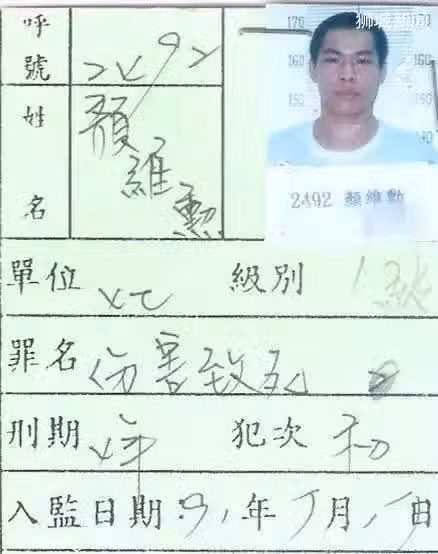 狮城新闻
呼號 2492
姓名 顏維勳
170
160 160
150
140
2492 顏維勳
單位 級別 1級
罪名 伤害致死
刑期 年 犯次 初
入監日期:91年 月 日